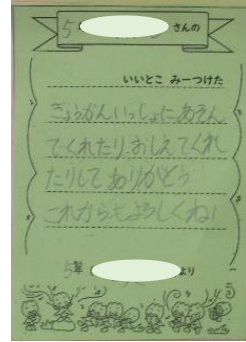 5 さんの
いいとこ みーつけた
ぎょうかんいっしょにあそん
でくれたり、おしえてくれ
たりしてありがとう
これからもよろしくね!
5年 より